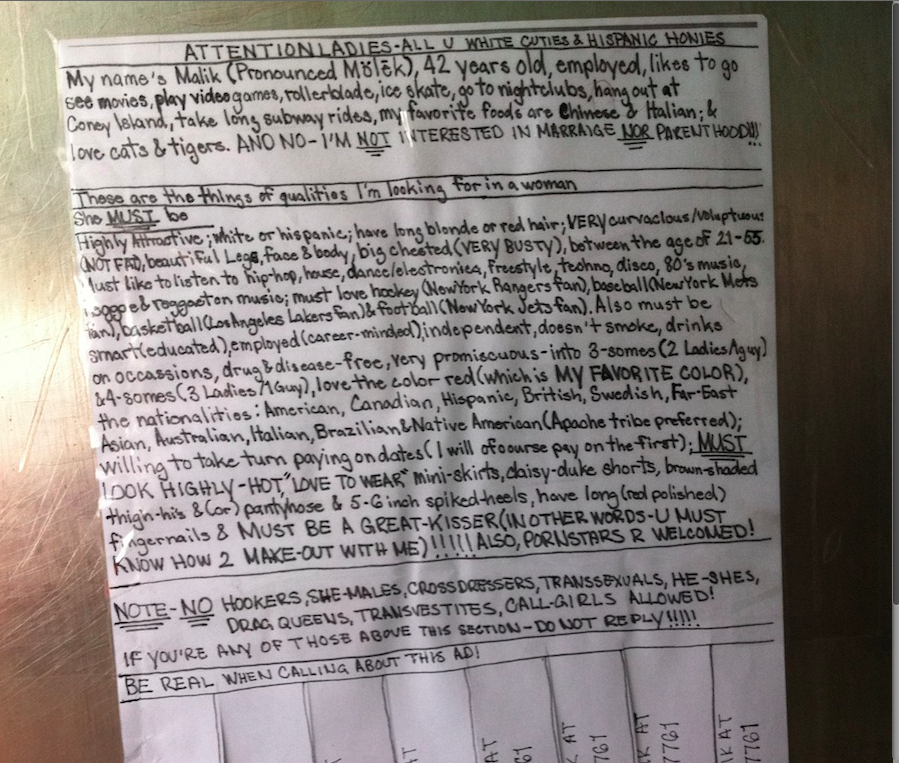 ATTENTION LADIES-ALL U WHITE CUTIES & HISPANIC HONIES
My name's Malik (Pronounced Mŏlēk), 42 years old, employed, likes to go
see movies, play video games, rollerblade, ice skate, go to nightclubs, hang out at
Coney Island, take long subway rides, my favorite foods are Chinese & Italian; &
love cats & tigers. AND NO-I'M NOT INTERESTED IN MARRAIGE NOR PARENTHOOD!!!
These are the things of qualities I'm looking for in a woman
She MUST be
Highly Attractive; white or hispanic; have long blonde or red hair; VERY curvacious/voluptuous
(NOT FAT), beautiful Legs, face & body, big chested (VERY BUSTY), between the age of 21-55.
Must like to listen to hip-hop, house, dance/electronica, freestyle, techno, disco, 80's music,
reggae & reggaeton music; must love hockey (New York Rangers fan), baseball (New York Mets
fan), basketball (Los Angeles Lakers fan) & football (New York Jets fan). Also must be
smart (educated), employed (career-minded), independent, doesn't smoke, drinks
on occassions, drug & disease-free, very promiscuous-into 3-somes (2 Ladies/1 guy)
& 4-somes (3 Ladies/1 Guy), love the color red (which is MY FAVORITE COLOR),
the nationalities: American, Canadian, Hispanic, British, Swedish, Far-East
Asian, Australian, Italian, Brazilian & Native American (Apache tribe preferred);
willing to take turn paying on dates (I will ofcourse pay on the first); MUST
LOOK HIGHLY-HOT, "LOVE TO WEAR" mini-skirts, daisy-duke shorts, brown-shaded
thigh-his & (or) pantyhose & 5-6 inch spiked-heels, have long (red polished)
fingernails & MUST BE A GREAT-KISSER (IN OTHER WORDS-U MUST
KNOW HOW 2 MAKE-OUT WITH ME)!!!!!! ALSO, PORNSTARS R WELCOMED!
NOTE-NO HOOKERS, SHE-MALES, CROSSDRESSERS, TRANSSEXUALS, HE-SHES,
DRAG QUEENS, TRANSVESTITES, CALL-GIRLS ALLOWED!
IF YOU'RE ANY OF THOSE ABOVE THIS SECTION-DO NOT REPLY!!!!!
BE REAL WHEN CALLING ABOUT THIS AD!
AT
AT
61
K AT
761
IK AT
7761
IK AT
7761